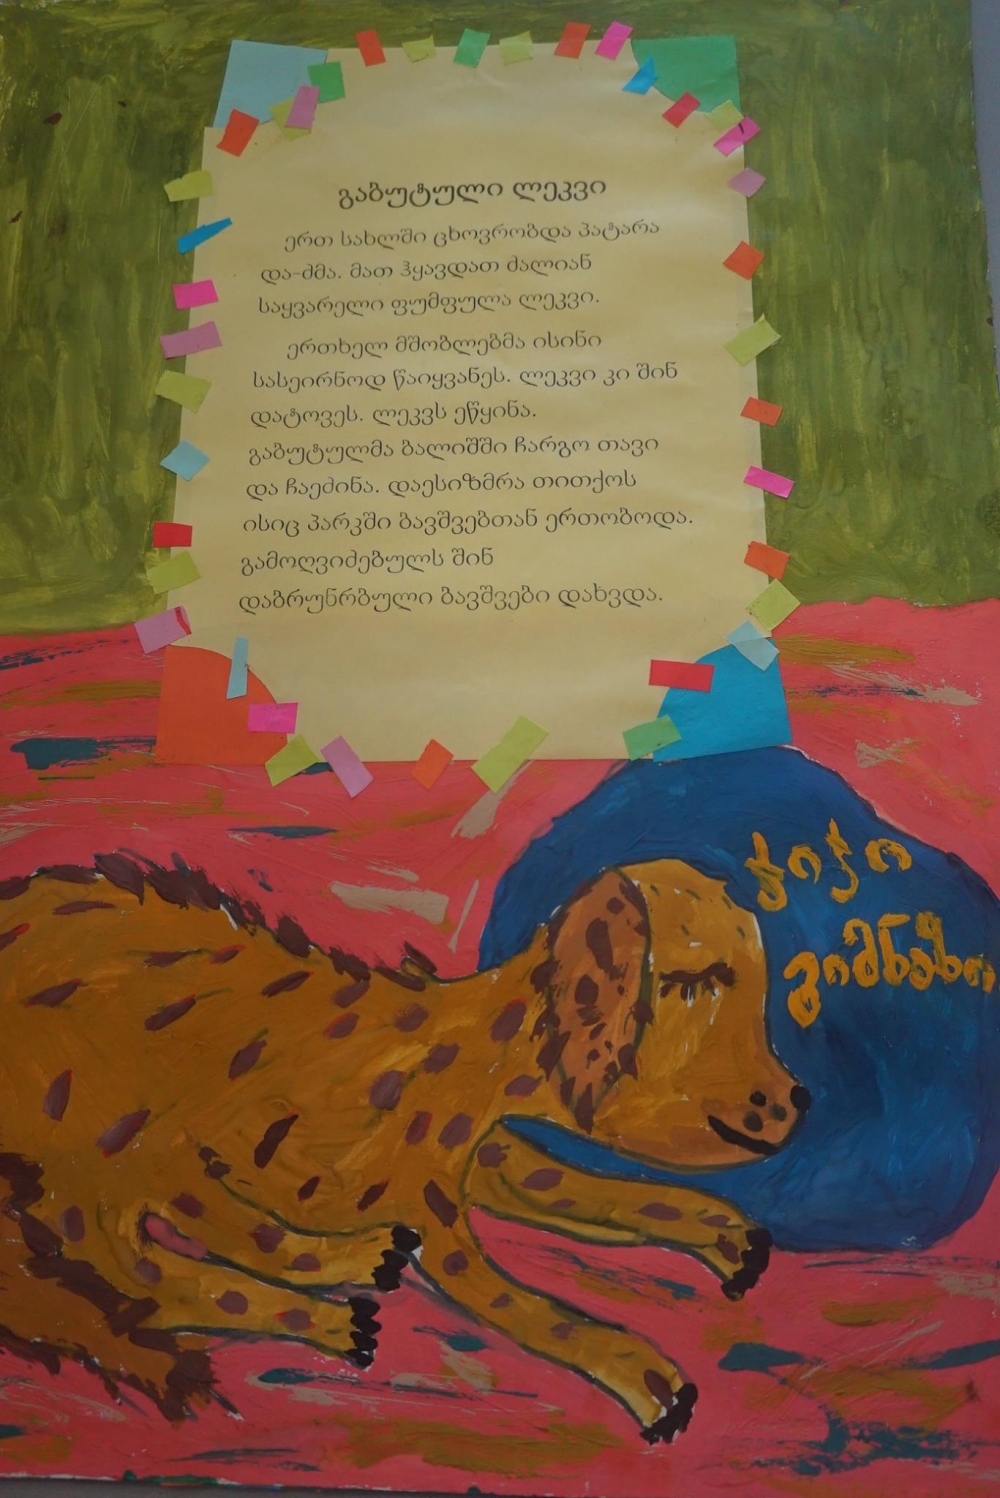 გაბუტული ლეკვი
ერთ სახლში ცხოვრობდა პატარა
და-ძმა. მათ ჰყავდათ ძალიან
საყვარელი ფუმფულა ლეკვი.
ერთხელ მშობლებმა ისინი
სასეირნოდ წაიყვანეს. ლეკვი კი შინ
დატოვეს. ლეკვს ეწყინა.
გაბუტულმა ბალიშში ჩარგო თავი
და ჩაეძინა. დაესიზმრა თითქოს
ისიც პარკში ბავშვებთან ერთობოდა.
გამოღვიძებულს შინ
დაბრუნრბული ბავშვები დახვდა.